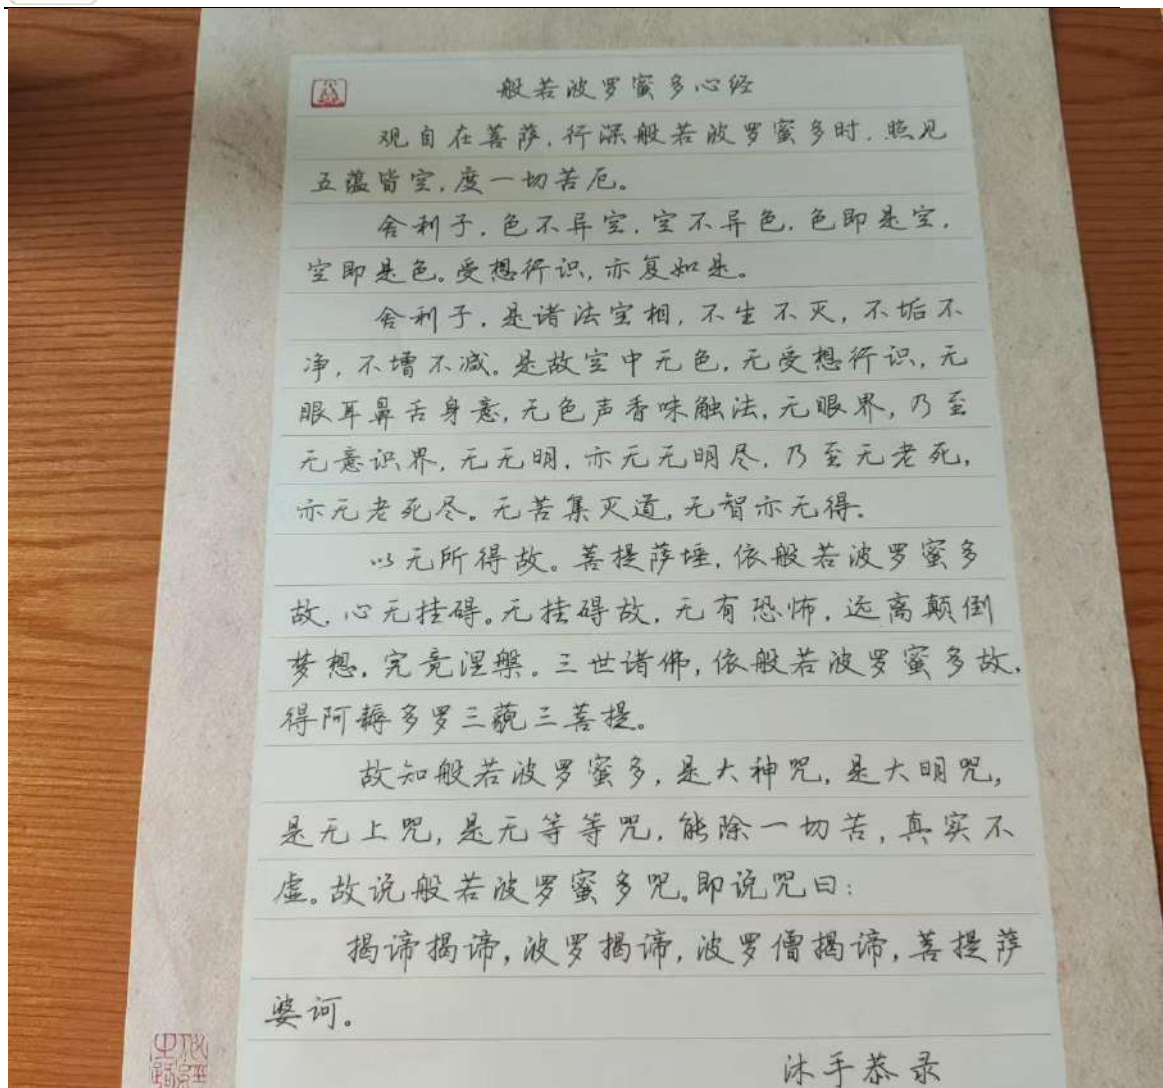 般若波罗蜜多心经
观自在菩萨,行深般若波罗蜜多时,照见
五蕴皆空,度一切苦厄。
舍利子,色不异空,空不异色,色即是空,
空即是色。受想行识,亦复如是。
舍利子,是诸法空相,不生不灭,不垢不
净,不增不减。是故空中无色,无受想行识,无
眼耳鼻舌身意,无色声香味触法,无眼界,乃至
无意识界,无无明,亦无无明尽,乃至无老死,
亦无老死尽。无苦集灭道,无智亦无得。
以无所得故。菩提萨埵,依般若波罗蜜多
故,心无挂碍。无挂碍故,无有恐怖,远离颠倒
梦想,究竟涅槃。三世诸佛,依般若波罗蜜多故,
得阿耨多罗三藐三菩提。
故知般若波罗蜜多,是大神咒,是大明咒,
是无上咒,是无等等咒,能除一切苦,真实不
虚。故说般若波罗蜜多咒。即说咒曰:
揭谛揭谛,波罗揭谛,波罗僧揭谛,菩提萨
婆诃。
沐手恭录